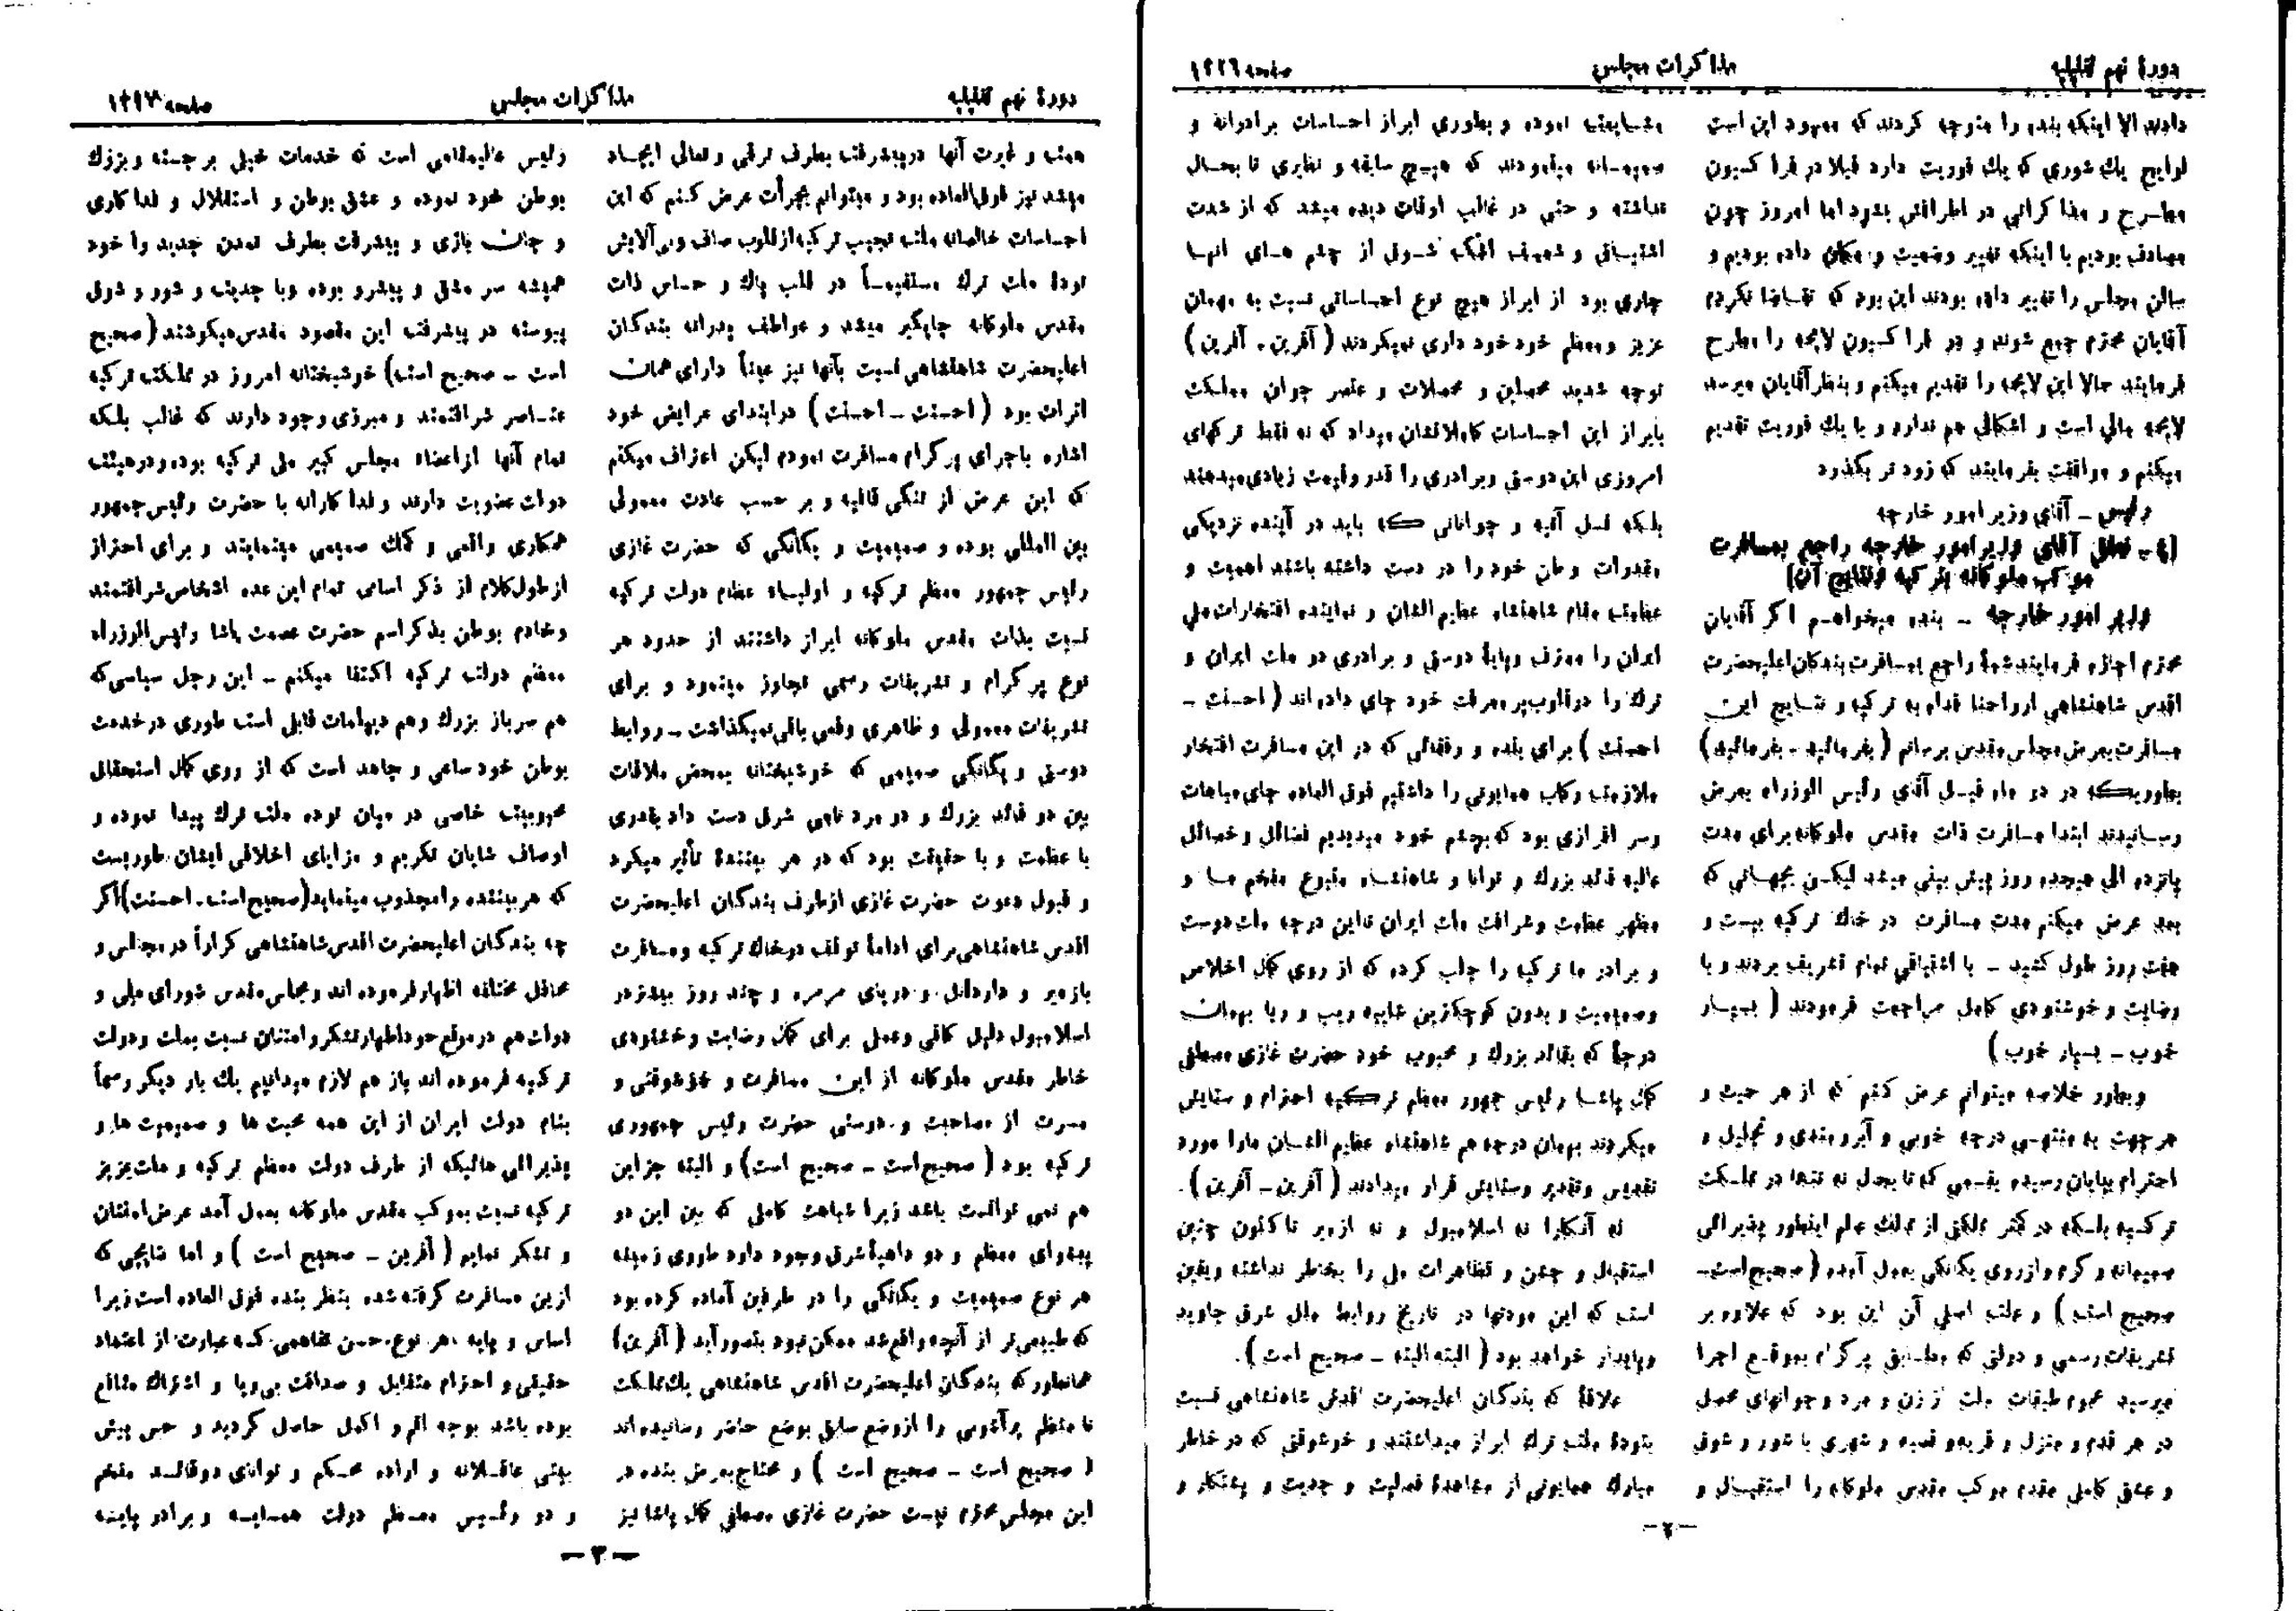 دورهٔ نهم تقنینیه
مذاکرات مجلس
صفحه ۱۲۲۶
دادند الا اینکه بنده را متوجه کردند که معمود این است
لوایح یك شوری که یك فوریت دارد قبلا در فراکسیون
مطرح و مذاکراتی در اطرافش بشود اما امروز چون
مصادف بودیم با اینکه تغییر وضعیت و مکان داده بودیم و
سالن مجلس را تغییر داده بودند این بود که تقاضا نکردم
آقایان محترم جمع شوند و در فراکسیون لایحه را مطرح
فرمایند حالا این لایحه را تقدیم میکنم و بنظر آقایان میرسد
لایحه مالی است و اشکالی هم ندارد و با یك فوریت تقدیم
میکنم و موافقت بفرمایند که زودتر بگذرد
رئیس ـ آقای وزیر امور خارجه
[۴ ـ نطق آقای وزیر امور خارجه راجع بمسافرت
موکب ملوکانه بترکیه و نتایج آن]
وزیر امور خارجه ـ بنده میخواهم اگر آقایان
محترم اجازه فرمایند شمهٔ راجع بمسافرت بندگان اعلیحضرت
اقدس شاهنشاهی ارواحنا فداه به ترکیه و نتایج این
مسافرت بعرض مجلس مقدس برسانم (بفرمائید ـ بفرمائید)
بطوریکه در دو ماه قبل آقای رئیس الوزراء بعرض
رسانیدند ابتدا مسافرت ذات مقدس ملوکانه برای مدت
پانزده الی هیجده روز پیش بینی میشد لیکن بجهاتی که
بعد عرض میکنم مدت مسافرت در خاك ترکیه بیست و
هفت روز طول کشید ـ با اشتیاقی تمام تشریف بردند و با
رضایت و خوشنودی کامل مراجعت فرمودند (بسیار
خوب ـ بسیار خوب)
وبطور خلاصه میتوانم عرض کنم که از هر حیث و
هر جهت به منتهی درجه خوبی و آبرومندی و تجلیل و
احترام بپایان رسیده بقسمی که تا بحال نه تنها در مملکت
ترکیه بلکه در کمتر مملکتی از ممالك عالم اینطور پذیرائی
صمیمانه و گرم و از روی یگانگی بعمل آمده (صحیح است ـ
صحیح است) و علت اصلی آن این بود که علاوه بر
تشریفات رسمی و دولتی که مطابق پرگرام بموقع اجرا
میرسید عموم طبقات ملت از زن و مرد و جوانهای محصل
در هر قدم و منزل و قریه و قصبه و شهری با شور و شوق
و عشق کاملی مقدم موکب مقدس ملوکانه را استقبال و
مشایعت نموده و بطوری ابراز احساسات برادرانه و
صمیمانه مینمودند که هیچ سابقه و نظیری تا بحال
نداشته و حتی در غالب اوقات دیده میشد که از شدت
اشتیاق و شعف اشك شوق از چشم های آنها
جاری بود از ابراز هیچ نوع احساساتی نسبت به مهمان
عزیز و معظم خود خود داری نمیکردند (آفرین ـ آفرین)
توجه شدید محصلین و محصلات و عنصر جوان مملکت
بابراز این احساسات کاملا نشان میداد که نه فقط ترکهای
امروزی این دوستی و برادری را قدر و قیمت زیادی میدهند
بلکه نسل آتیه و جوانانی که باید در آینده نزدیکی
مقدرات وطن خود را در دست داشته باشند اهمیت و
عظمت مقام شاهنشاه عظیم الشان و نماینده افتخارات ملی
ایران را معرف و پایهٔ دوستی و برادری دو ملت ایران و
ترك را در قلوب پر معرفت خود جای داده اند (احسنت ـ
احسنت) برای بنده و رفقائی که در این مسافرت افتخار
ملازمت رکاب همایونی را داشتیم فوق العاده جای مباهات
و سر افرازی بود که بچشم خود میدیدیم فضائل و خصائل
عالیه قائد بزرك و توانا و شاهنشاه متبوع مفخم ما و
مظهر عظمت و شرافت ملت ایران تا این درجه ملت دوست
و برادر ما ترکیه را جلب کرده که از روی کمال اخلاص
وصمیمیت و بدون کوچکترین شایبه ریب و ریا بهمان
درجهٔ که بقائد بزرك و محبوب خود حضرت غازی مصطفی
کمال پاشا رئیس جمهور معظم ترکیه احترام و ستایش
میکردند بهمان درجه هم شاهنشاه عظیم الشان مارا مورد
تقدیس و تقدیر و ستایش قرار میدادند (آفرین ـ آفرین).
نه آنکارا نه اسلامبول و نه ازمیر تا کنون چنین
استقبال و جشن و تظاهرات ملی را بخاطر نداشته و یقین
است که این مودتها در تاریخ روابط ملل شرق جاوید
و پایدار خواهد بود (البته البته ـ صحیح است).
علاقهٔ که بندگان اعلیحضرت اقدس شاهنشاهی نسبت
بتودهٔ ملت ترك ابراز میداشتند و خوشوقتی که در خاطر
مبارك همایونی از مشاهدهٔ فعلیت و جدیت و پشتکار و
ـ ۲ ـ
دورهٔ نهم تقنینیه
مذاکرات مجلس
صفحه ۱۲۲۷
همت و غیرت آنها در پیشرفت بطرف ترقی و تعالی ایجاد
میشد نیز فوق العاده بود و میتوانم بجرأت عرض کنم که این
احساسات خالصانه ملت نجیب ترکیه از قلوب صاف و بی آلایش
تودهٔ ملت ترك مستقیماً در قلب پاك و حساس ذات
مقدس ملوکانه جایگیر میشد و عواطف پدرانه بندگان
اعلیحضرت شاهنشاهی نسبت بآنها نیز عیناً دارای همان
اثرات بود (احسنت ـ احسنت) در ابتدای عرایض خود
اشاره باجرای پرگرام مسافرت نمودم لیکن اعتراف میکنم
که این عرض از تنگی قافیه و بر حسب عادت معمولی
بین المللی بوده و صمیمیت و یگانگی که حضرت غازی
رئیس جمهور معظم ترکیه و اولیاء عظام دولت ترکیه
نسبت بذات مقدس ملوکانه ابراز داشتند از حدود هر
نوع پرگرام و تشریفات رسمی تجاوز مینمود و برای
تشریفات معمولی و ظاهری وقعی باقی نمیگذاشت ـ روابط
دوستی و یگانگی صمیمی که خوشبختانه بمحض ملاقات
بین دو قائد بزرك و دو مرد نامی شرق دست داد بقدری
با عظمت و با حقیقت بود که در هر بینندهٔ تأثیر میکرد
و قبول دعوت حضرت غازی از طرف بندگان اعلیحضرت
اقدس شاهنشاهی برای ادامهٔ توقف در خاك ترکیه و مسافرت
بازمیر و داردانل و دریای مرمره و چند روز بیشتر در
اسلامبول دلیل کافی و عملی برای کمال رضایت و خشنودی
خاطر مقدس ملوکانه از این مسافرت و خوشوقتی و
مسرت از مصاحبت و دوستی حضرت رئیس جمهوری
ترکیه بود (صحیح است ـ صحیح است) و البته جز این
هم نمی توانست باشد زیرا شباهت کاملی که بین این دو
پیشوای معظم و دو داهیهٔ شرق وجود دارد طوری زمینه
هر نوع صمیمیت و یگانگی را در طرفین آماده کرده بود
که طبیعی تر از آنچه واقع شد ممکن نبود بتصور آید (آفرین)
همانطور که بندگان اعلیحضرت اقدس شاهنشاهی یك مملکت
نا منظم پر آشوبی را از وضع سابق بوضع حاضر رسانیده اند
(صحیح است ـ صحیح است) و محتاج بعرض بنده در
این مجلس محترم نیست حضرت غازی مصطفی کمال پاشا نیز
رئیس عالیمقامی است که خدمات خیلی برجسته و بزرك
بوطن خود نموده و عشق بوطن و استقلال و فداکاری
و جان بازی و پیشرفت بطرف تمدن جدید را خود
همیشه سر مشق و پیشرو بوده و با جدیت و شور و شوق
پیوسته در پیشرفت این مقصود مقدس میکوشند (صحیح
است ـ صحیح است) خوشبختانه امروز در مملکت ترکیه
عناصر شرافتمند و مبرزی وجود دارند که غالب بلکه
تمام آنها از اعضاء مجلس کبیر ملی ترکیه بوده و در هیئت
دولت عضویت دارند و فداکارانه با حضرت رئیس جمهور
همکاری واقعی و کمك صمیمی مینمایند و برای احتراز
از طول کلام از ذکر اسامی تمام این عده اشخاص شرافتمند
و خادم بوطن بذکر اسم حضرت عصمت پاشا رئیس الوزراء
معظم دولت ترکیه اکتفا میکنم ـ این رجل سیاسی که
هم سرباز بزرك و هم دیپلمات قابل است طوری در خدمت
بوطن خود ساعی و جاهد است که از روی کمال استحقاق
محبوبیت خاصی در میان توده ملت ترك پیدا نموده و
اوصاف شایان تکریم و مزایای اخلاقی ایشان طوریست
که هر بیننده را مجذوب مینماید (صحیح است ـ احسنت) اگر
چه بندگان اعلیحضرت اقدس شاهنشاهی کراراً در مجالس و
محافل مختلفه اظهار فرموده اند و مجلس مقدس شورای ملی و
دولت هم در موقع خود اظهار تشکر و امتنان نسبت بملت و دولت
ترکیه فرموده اند باز هم لازم میدانیم یك بار دیگر رسماً
بنام دولت ایران از این همه محبت ها و صمیمیت ها و
پذیرائی هائیکه از طرف دولت معظم ترکیه و ملت عزیز
ترکیه نسبت بموکب مقدس ملوکانه بعمل آمد عرض امتنان
و تشکر نمایم (آفرین ـ صحیح است) و اما نتایجی که
از این مسافرت گرفته شده بنظر بنده فوق العاده است زیرا
اساس و پایه هر نوع حسن تفاهمی که عبارت از اعتماد
حقیقی و احترام متقابل و صداقت بی ریا و اشتراك منافع
بوده باشد بوجه اتم و اکمل حاصل گردید و حس پیش
بینی عاقلانه و اراده محکم و توانای دو قائد مفخم
و دو رئیس معظم دولت همسایه و برادر پایه
ـ ۳ ـ